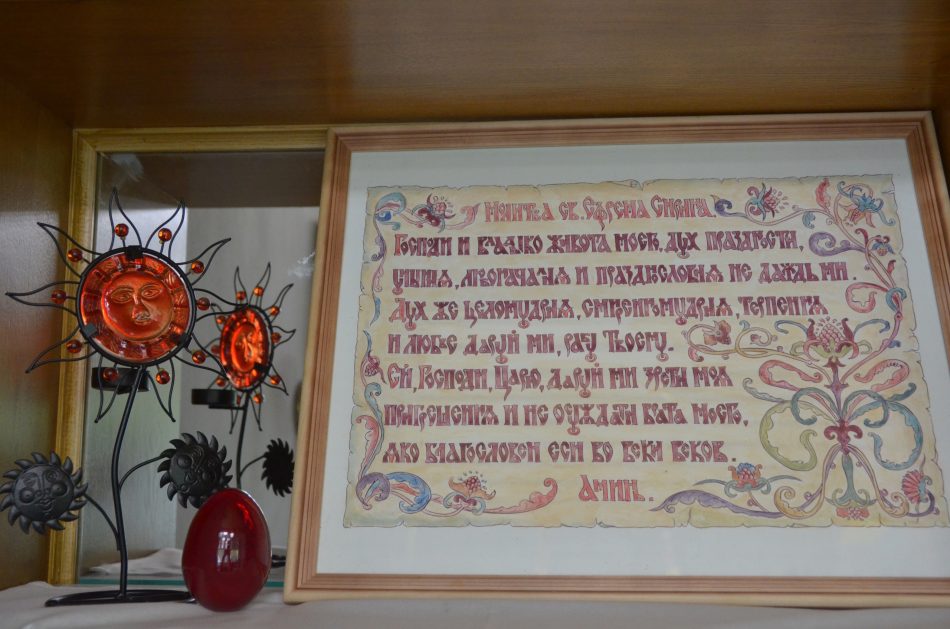 Молитва св. Ефрема Сирина.
Господи и Владыко живота моего, дух праздности,
уныния, любоначалия и празднословия не даждь ми.
Дух же целомудрия, смиренномудрия, терпения
и любве даруй ми, рабу Твоему.
Ей, Господи, Царю, даруй ми зрети моя
прегрешения и не осуждати брата моего,
яко благословен еси во веки веков.
Аминь.